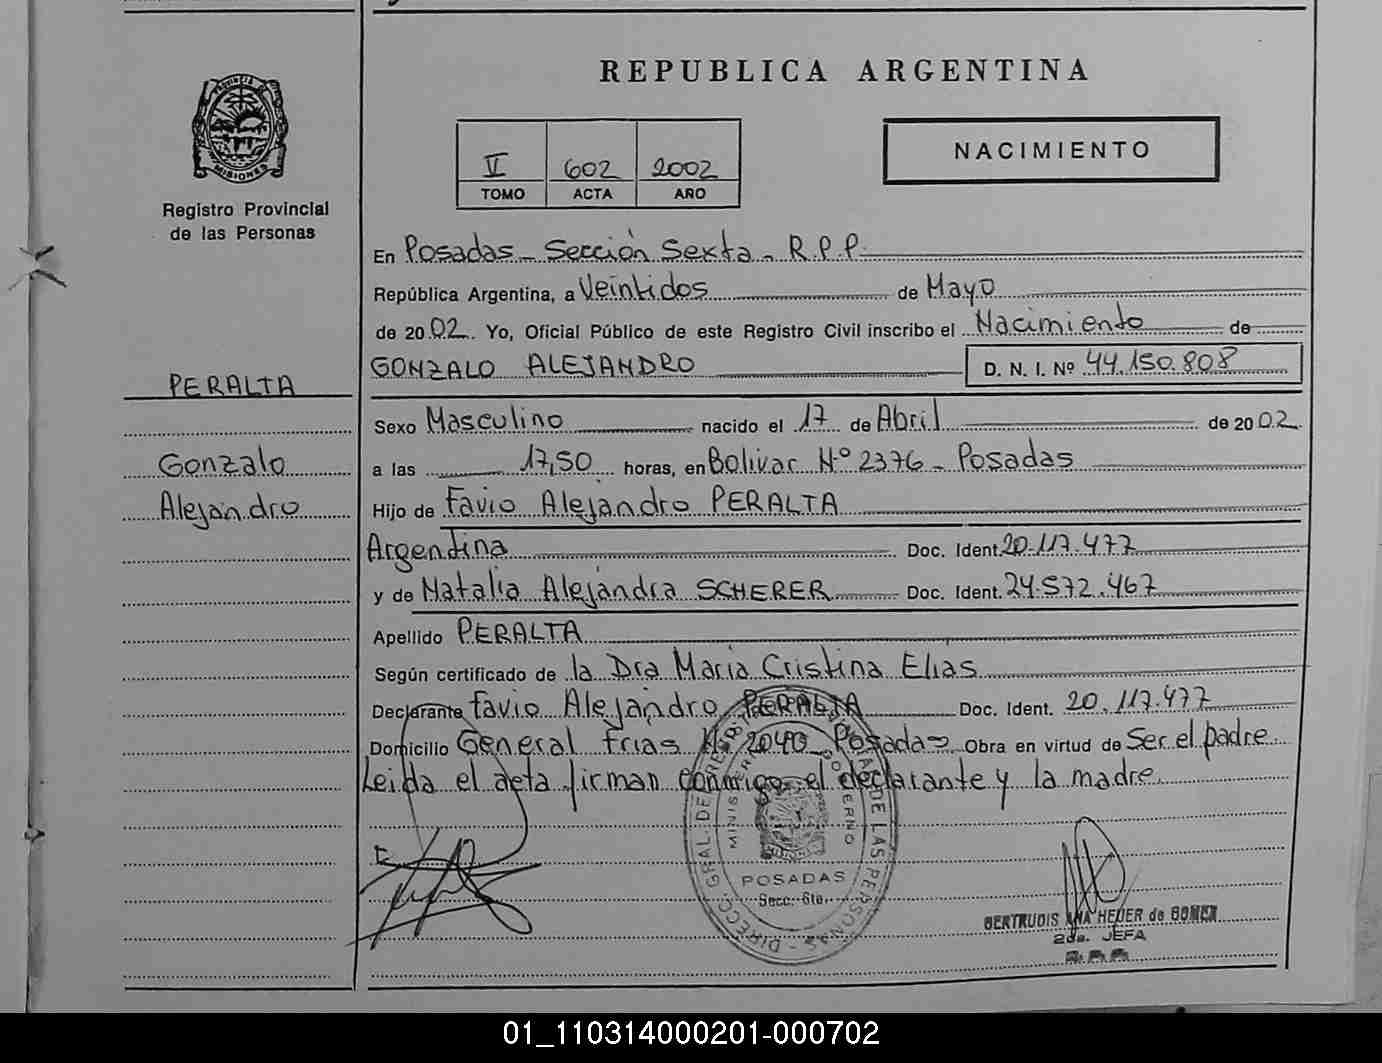 REPUBLICA ARGENTINA
PROVINCIA DE
MISIONES
Registro Provincial
de las Personas
V 602 2002
TOMO ACTA AÑO
NACIMIENTO
En Posadas - Sección Sexta - R.P.P.
República Argentina, a Veintidos de Mayo
de 2002. Yo, Oficial Público de este Registro Civil inscribo el Nacimiento de
GONZALO ALEJANDRO D. N. I. Nº 44.150.808
PERALTA
Gonzalo
Alejandro
Sexo Masculino nacido el 17 de Abril de 2002.
a las 17,50 horas, en Bolivar Nº 2376 - Posadas
Hijo de Favio Alejandro PERALTA
Argentina Doc. Ident. 20.117.477
y de Natalia Alejandra SCHERER Doc. Ident. 24.572.467
Apellido PERALTA
Según certificado de la Dra Maria Cristina Elias
Declarante Favio Alejandro PERALTA Doc. Ident. 20.117.477
Domicilio General Frias Nº 2040 Posadas Obra en virtud de Ser el padre
Leida el acta firman conmigo el declarante y la madre
POSADAS
Secc. 6ta.
GERTRUDIS ANA HEUER de GOMEZ
2da. JEFA
01_110314000201-000702